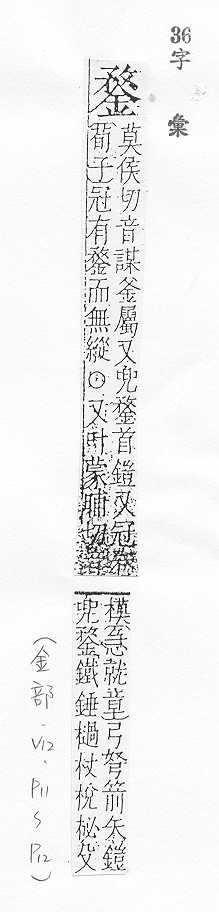 36字彙
鍪
莫侯切音謀釜屬又兜鍪首鎧又冠
荀子冠有鍪而無縱○又叶蒙晡切
模急就章弓弩箭矢鎧
兜鍪鐵錘檛杖梲柲殳
(金部.V12.P11~P12)